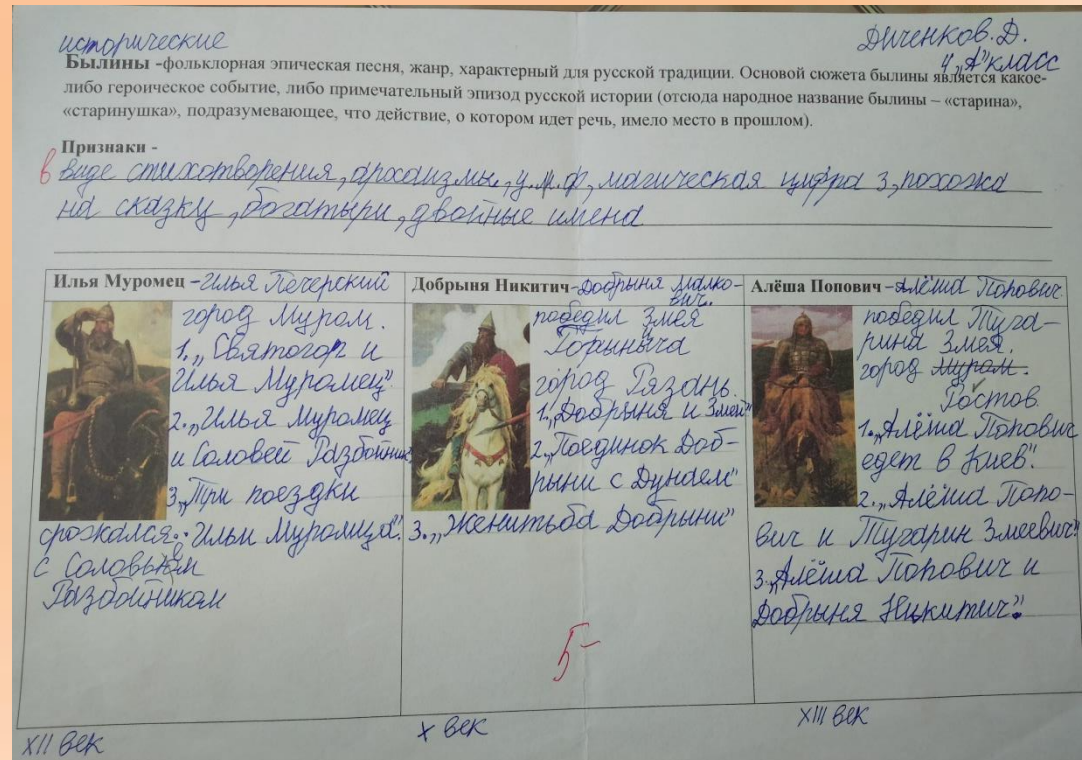 исторические
Диченков. Д.
4 „А" класс
Былины -фольклорная эпическая песня, жанр, характерный для русской традиции. Основой сюжета былины является какое-
либо героическое событие, либо примечательный эпизод русской истории (отсюда народное название былины – «старина»,
«старинушка», подразумевающее, что действие, о котором идет речь, имело место в прошлом).
Признаки -
в виде стихотворения, архаизмы, у.м.ф, магическая цифра 3, похожа
на сказку, богатыри, двойные имена
Илья Муромец - Илья Печерский
город Муром.
1. „Святогор и
Илья Муромец"
2. „Илья Муромец
и Соловей Разбойник"
3. „Три поездки
Ильи Муромца".
сражался
с Соловьём
Разбойником
XII век
Добрыня Никитич-Добрыня Малко-
вич.
победил Змея
Горыныча
город Рязань.
1. „Добрыня и Змей"
2. „Поединок Доб-
рыни с Дунаем"
3. „Женитьба Добрыни"
5-
X век
Алёша Попович - Алёша Попович.
победил Туга-
рина Змея.
город Муром.
Ростов.
1. „Алёша Попович
едет в Киев".
2. „Алёша Попо-
вич и Тугарин Змеевич"
3. „Алёша Попович и
Добрыня Никитич".
XIII век